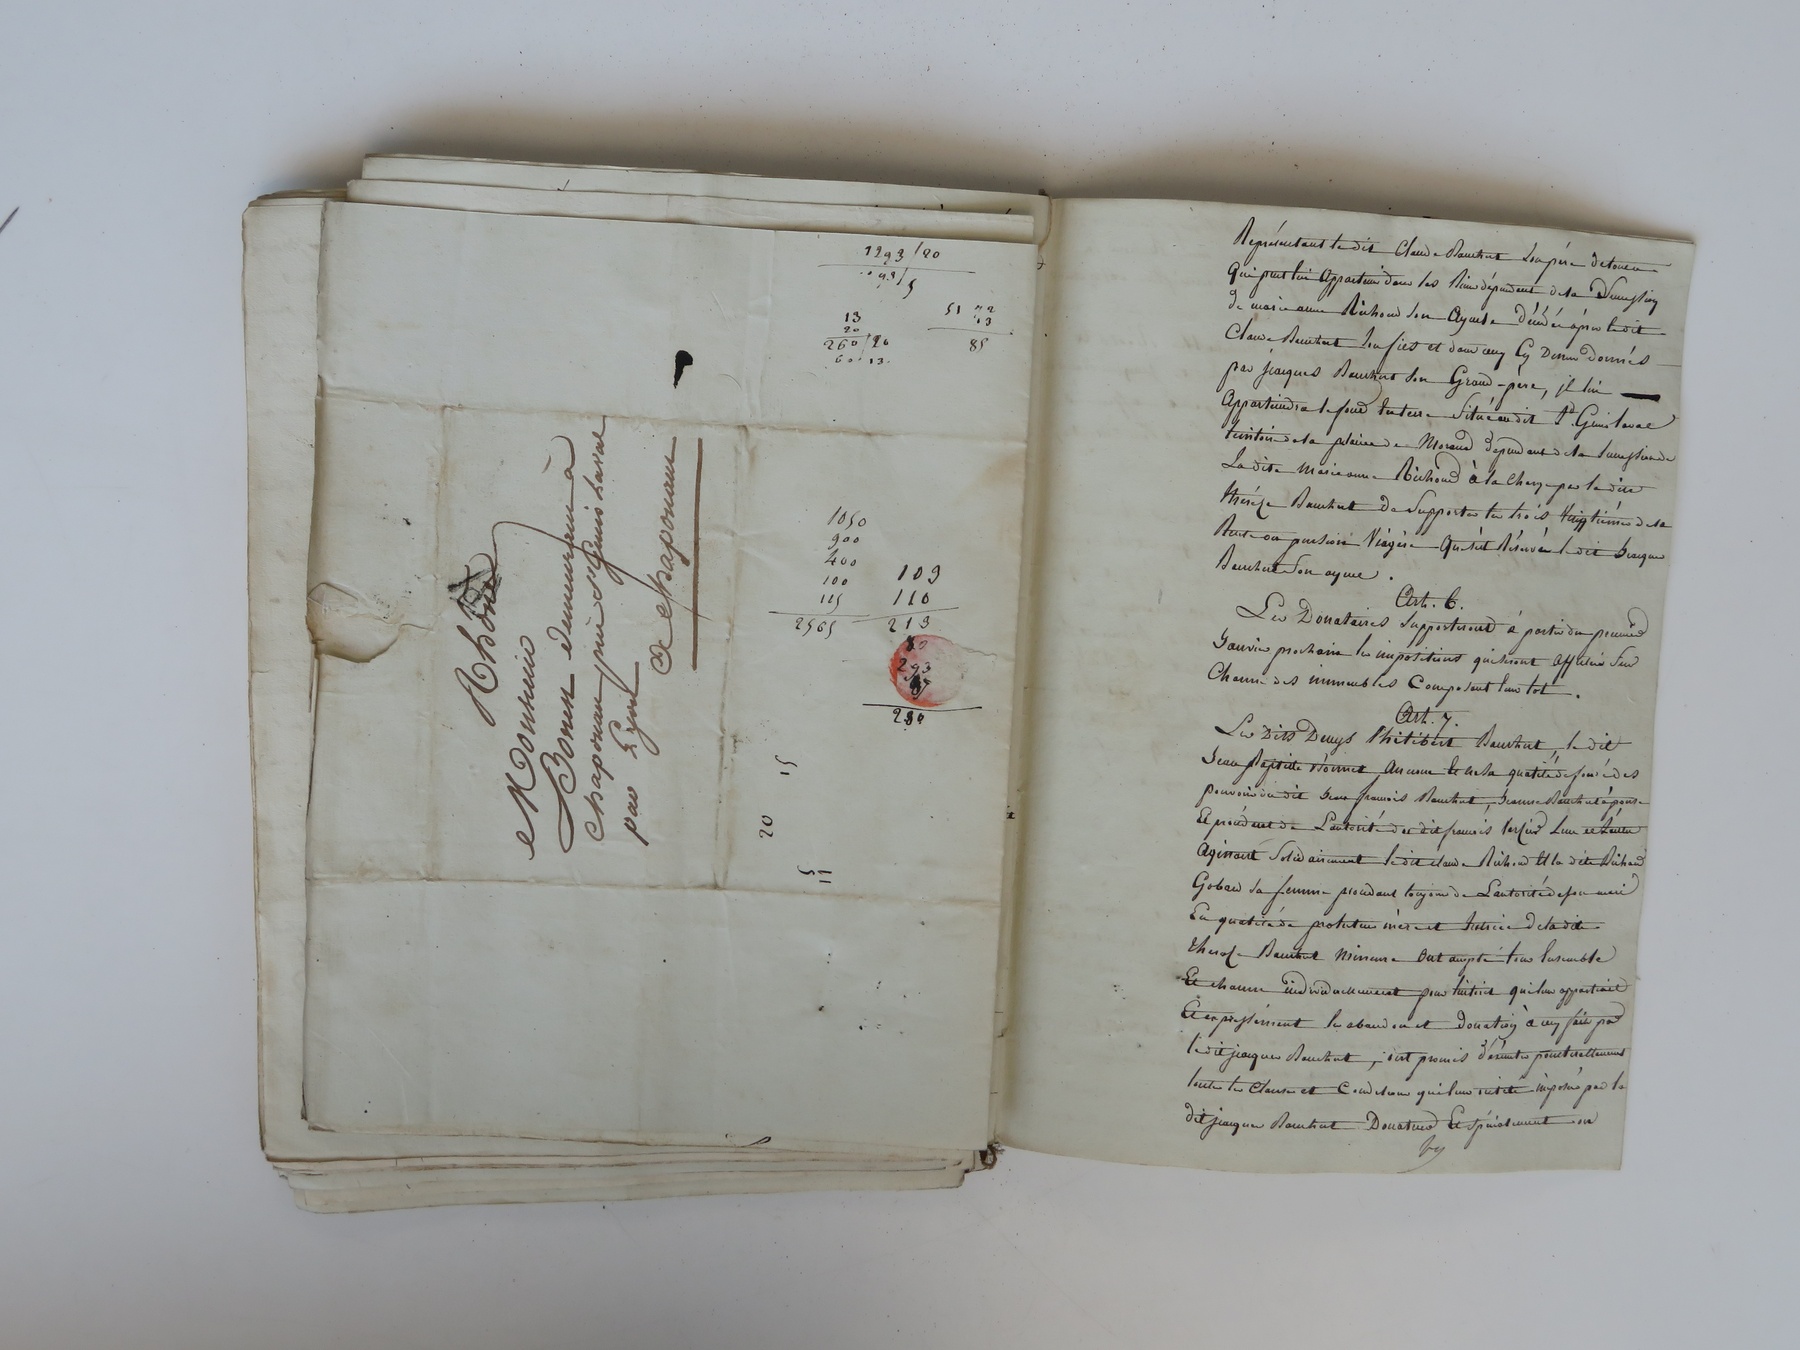 1293/20
93/5
13
20
260/20
60 13
51 72
13
85
Rhône
Monsieur
Bonnet demeurant à
Chaponau près St Genis Laval
par Lyon
de Chaponau
1050
900
400
100
115
2565
109
110
213
80
293
280
15
20
Représentant le dit Claude Bouchut son père de tout ce
qui peut lui appartenir dans les Biens dépendant de la Succession
de marie anne Richoud son Ayeule décédée après le dit
Claude Bouchut son fils et dans ceux Cy Dessus donnés
par jiacques Bouchut son Grand-père, il lui
Appartiendra le fond en terre Situé au dit St Genis laval
territoire de la plaine de Morand dépendant de la Succession de
La dite Marie anne Richoud à la Charge par la dite
thérèze Bouchut de Supporter les trois Vingtièmes de la
Rente ou pension Viagère que s'est Réservée le dit Jiacques
Bouchut son ayeul.
Art. 6.
Les Donataires Supporteront à partir du premier
Janvier prochain les impositions qui seront assises sur
Chacun des immeubles Composant leur lot.
Art. 7.
Les Dits Denys Philibert Bouchut, le dit
Jean Baptiste Bonnet en sa qualité de fondé des
pouvoirs du dit Jean françois Bouchut, Jeanne Bouchut épouse
Et procédant de L'autorité du dit françois
Agissant Solidairement le dit claude Richoud Et la dite
Gobard sa femme procédant toujours de L'autorité de son mari
En qualité de protuteur mère et tutrice de la dite
thereze Bouchut Mineure Ont accepté tous Ensemble
Et chacun individuellement pour l'intérêt qui leur appartient
Et expressément les abandon et Donation à eux faits par
le dit jiacques Bouchut, ont promis d'éxécuter ponctuellement
toutes les Clauses et Conditions qui leur ont été imposées par le
dit jiacques Bouchut Donateur Et Spécialement